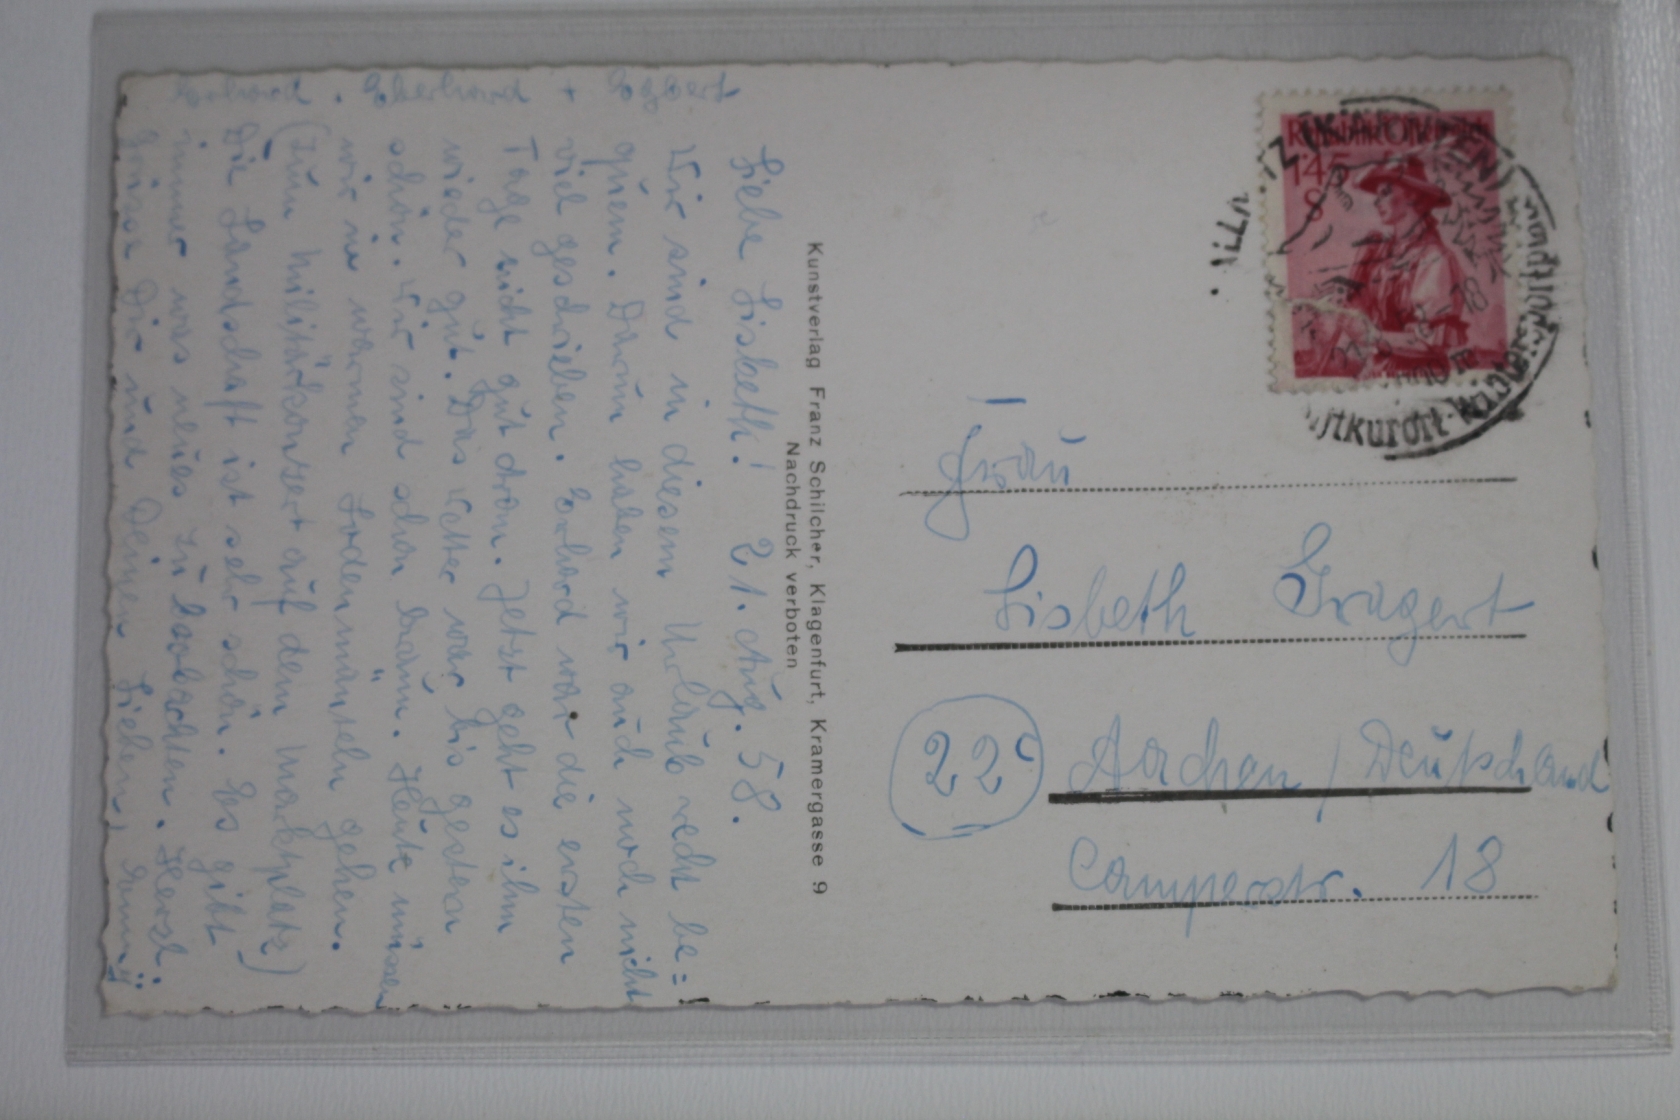 Liebe Lisbeth! 21. Aug. 58.
Wir sind in diesem Urlaub recht be=
quem. Darum haben wir auch noch nicht
viel geschrieben. Erhard war die ersten
Tage nicht gut dran. Jetzt geht es ihm
wieder gut. Das Wetter war bis gestern
schön. Wir sind schon braun. Heute müssen
wir in warmen Lodenmänteln gehen.
(Zum Militärkonzert auf dem Marktplatz)
Die Landschaft ist sehr schön. Es gibt
immer was neues zu beobachten. Herzl.
Grüsse Dir und Deinen Lieben,
Erhard, Eberhard +
Kunstverlag Franz Schilcher, Klagenfurt, Kramergasse 9
Nachdruck verboten
REPUBLIK ÖSTERREICH
1·45
S
Frau
Lisbeth Gragert
22c Aachen / Deutschland
Camperstr. 18